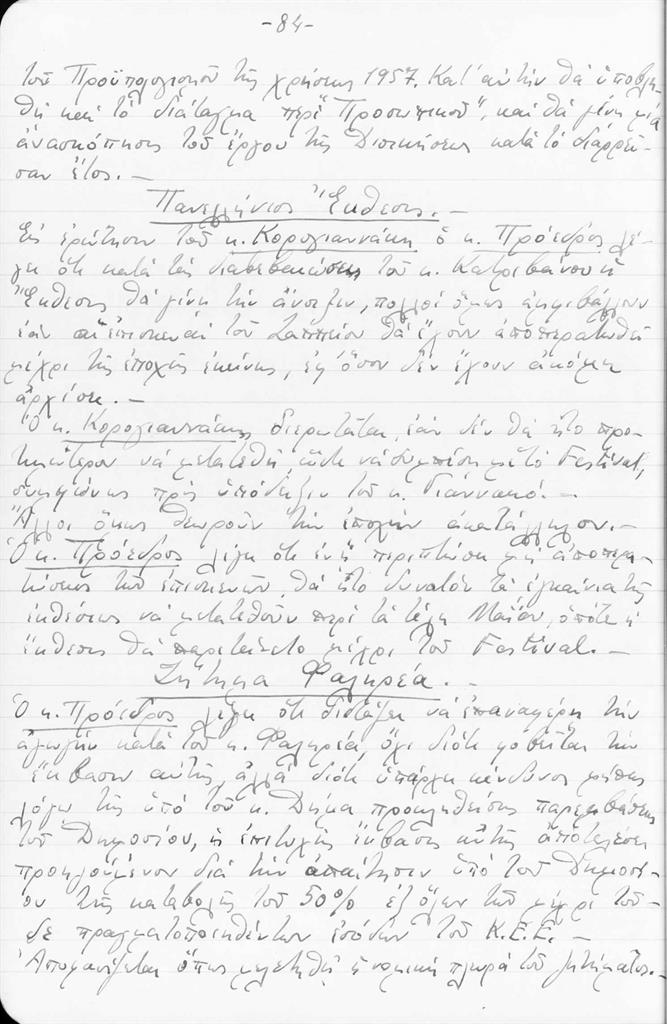 -84-
τοῦ Προϋπολογισμοῦ τῆς χρήσεως 1957. Κατ' αὐτὴν θὰ ὑποβλη-
θῇ καὶ τὸ διάταγμα περὶ "Προσωπικοῦ", καὶ θὰ γίνῃ μία
ἀνασκόπησις τοῦ ἔργου τῆς Διοικήσεως κατὰ τὸ διαρρεῦ-
σαν ἔτος.-
Πανελλήνιος Ἔκθεσις.-
Εἰς ἐρώτησιν τοῦ κ. Κορογιαννάκη ὁ κ. Πρόεδρος λέ-
γει ὅτι κατὰ τὰς διαβεβαιώσεις τοῦ κ. Κατριβάνου ἡ
Ἔκθεσις θὰ γίνῃ τὴν ἄνοιξιν, πολλοὶ ὅμως ἀμφιβάλλουν
ἐὰν αἱ ἐπισκευαὶ τοῦ Ζαππείου θὰ ἔχουν ἀποπερατωθῆ
μέχρι τῆς ἐποχῆς ἐκείνης, ἐφ' ὅσον δὲν ἔχουν ἀκόμη
ἀρχίσει.-
Ὁ κ. Κορογιαννάκης διερωτᾶται, ἐὰν δὲν θὰ ἦτο προ-
τιμώτερον νὰ μετατεθῇ, ὥστε νὰ συμπέσῃ μὲ τὸ Festival,
συμφώνως πρὸς ὑπόδειξιν τοῦ κ. Γιαννακό.-
Ἄλλοι ὅμως θεωροῦν τὴν ἐποχὴν ἀκατάλληλον.-
Ὁ κ. Πρόεδρος λέγει ὅτι ἐν ᾗ περιπτώσει μὴ ἀποπερα-
τώσεως τῶν ἐπισκευῶν, θὰ ἦτο δυνατὸν τὰ ἐγκαίνια τῆς
ἐκθέσεως νὰ μετατεθοῦν περὶ τὰ τέλη Μαΐου, ὁπότε ἡ
ἔκθεσις θὰ παρετείνετο μέχρι τοῦ Festival.-
Ζήτημα Φαληρέα.-
Ὁ κ. Πρόεδρος λέγει ὅτι διστάζει νὰ ἐπαναφέρῃ τὴν
ἀγωγὴν κατὰ τοῦ κ. Φαληρέα, ὄχι διότι φοβεῖται τὴν
ἔκβασιν αὐτῆς, ἀλλὰ διότι ὑπάρχει κίνδυνος μήπως
λόγῳ τῆς ὑπὸ τοῦ κ. Δήμα προκληθείσης παρεμβάσεως
τοῦ Δημοσίου, ἡ ἐπιτυχὴς ἔκβασις αὐτῆς ἀποτελέσει
προηγούμενον διὰ τὴν ἀπαίτησιν ὑπὸ τοῦ Δημοσί-
ου τῆς καταβολῆς τοῦ 50% ἐξ ὅλων τῶν μέχρι τοῦ-
δε πραγματοποιηθέντων ἐσόδων τοῦ Κ.Ε.Ε.-
Ἀποφασίζεται ὅπως μελετηθῇ ἡ νομικὴ πλευρὰ τοῦ ζητήματος.-